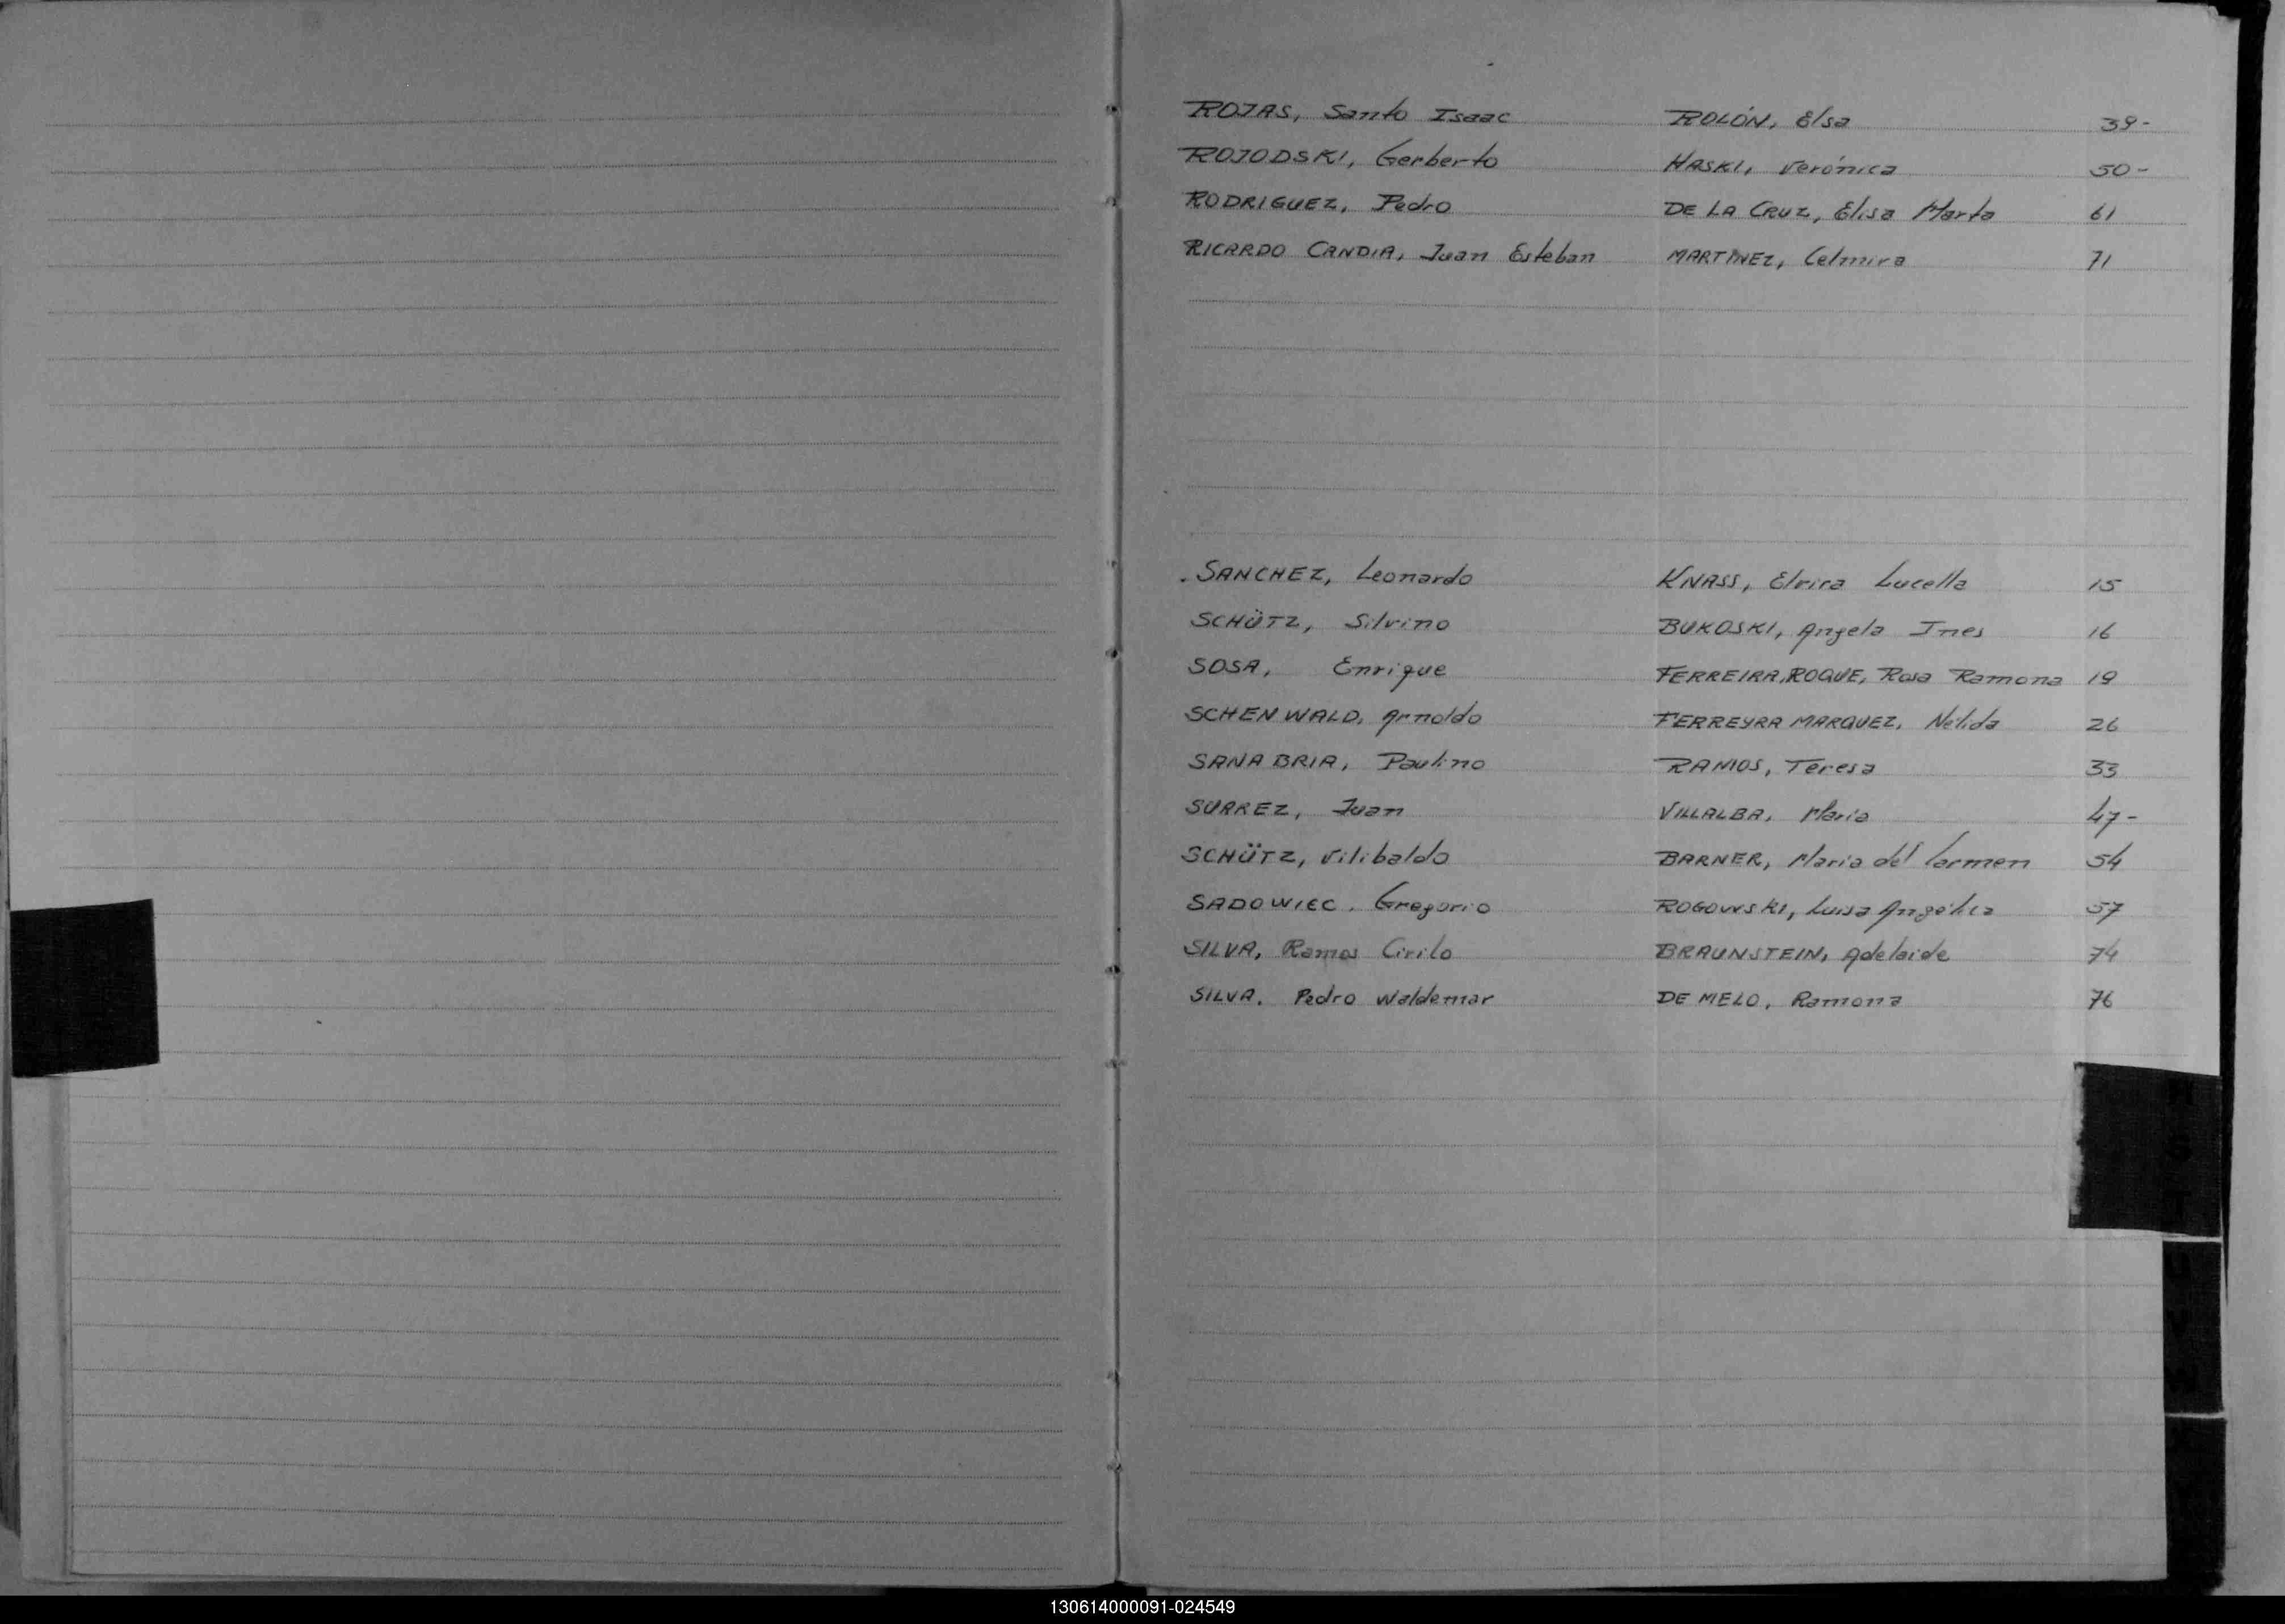 ROJAS, Santo Isaac ROLÓN, Elsa 39-
ROJODSKI, Gerberto HASKI, Verónica 50-
RODRIGUEZ, Pedro DE LA CRUZ, Elisa Marta 61
RICARDO CANDIA, Juan Esteban MARTINEZ, Celmira 71
. SANCHEZ, Leonardo KNASS, Elvira Lucella 15
SCHÜTZ, Silvino BUKOSKI, Angela Ines 16
SOSA, Enrique FERREIRA, ROQUE, Rosa Ramona 19
SCHENWALD, Arnoldo FERREYRA MARQUEZ, Nélida 26
SANABRIA, Paulino RAMOS, Teresa 33
SUAREZ, Juan VILLALBA, María 47-
SCHÜTZ, Vilibaldo BARNER, María del Carmen 54
SADOWIEC, Gregorio ROGOWSKI, Luisa Angélica 57
SILVA, Ramos Cirilo BRAUNSTEIN, Adelaide 74
SILVA, Pedro Waldemar DE MELO, Ramona 76
130614000091-024549